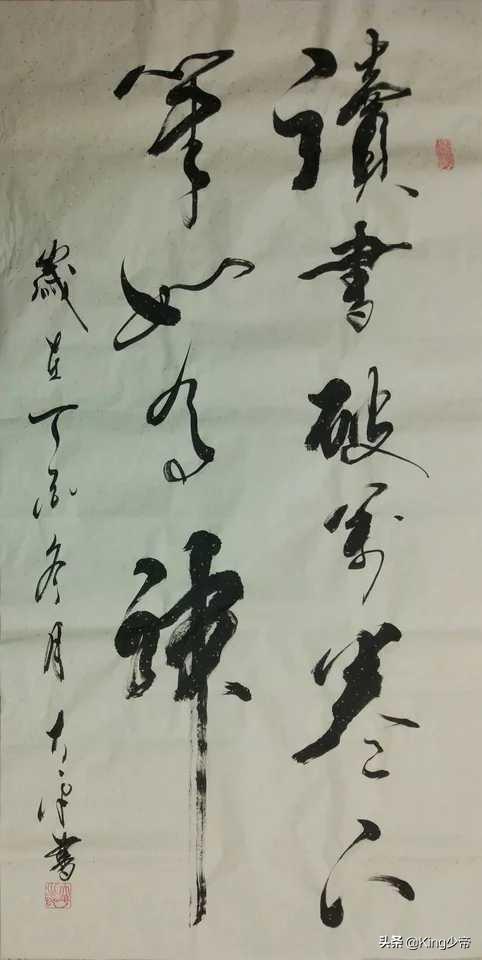 讀書破萬卷下
筆如有神
歲在丁酉冬月大平書
头条 @King少帝